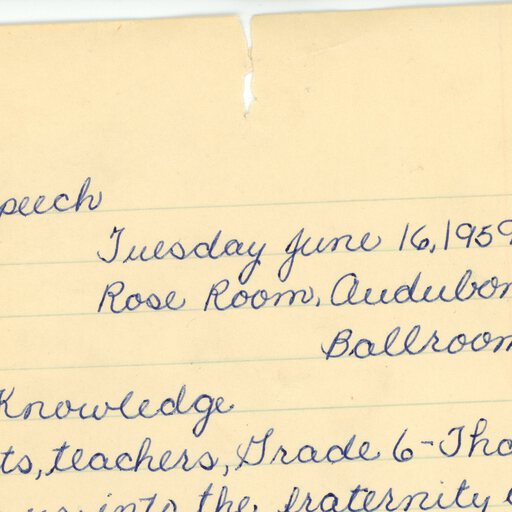 peech
Tuesday June 16, 1959
Rose Room, Audubon
Ballroom
Knowledge
ts, teachers, Grade 6-Tha
into the fraternity